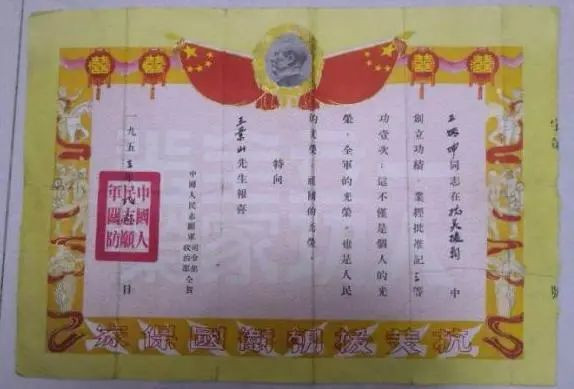 王炳坤同志在抗美援朝中
創立功績，業經批准記三等
功壹次；這不僅是個人的光
榮，全軍的光榮，也是人民
的光榮，祖國的光榮。
特向
王業山先生報喜
中國人民志願軍司令部政治部仝賀
一九五三年月日
中國人
民志願
軍國防
抗美援朝衛國保家